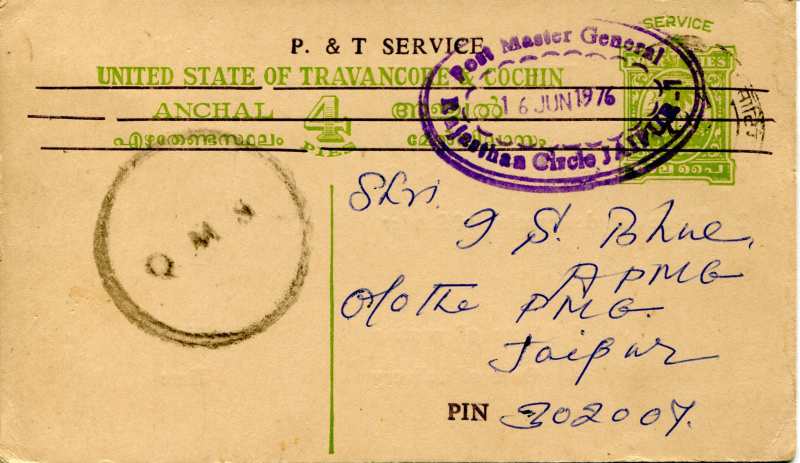 SERVICE
P. & T SERVICE
UNITED STATE OF TRAVANCORE & COCHIN
ANCHAL 4 അഞ്ചൽ
എഴുതേണ്ടസ്ഥലം PIES
Post Master General
16 JUN 1976
Rajasthan Circle JAIPUR-7
Shri
I. S. Bhue,
APMG
O/o the PMG.
Jaipur
PIN 302007.